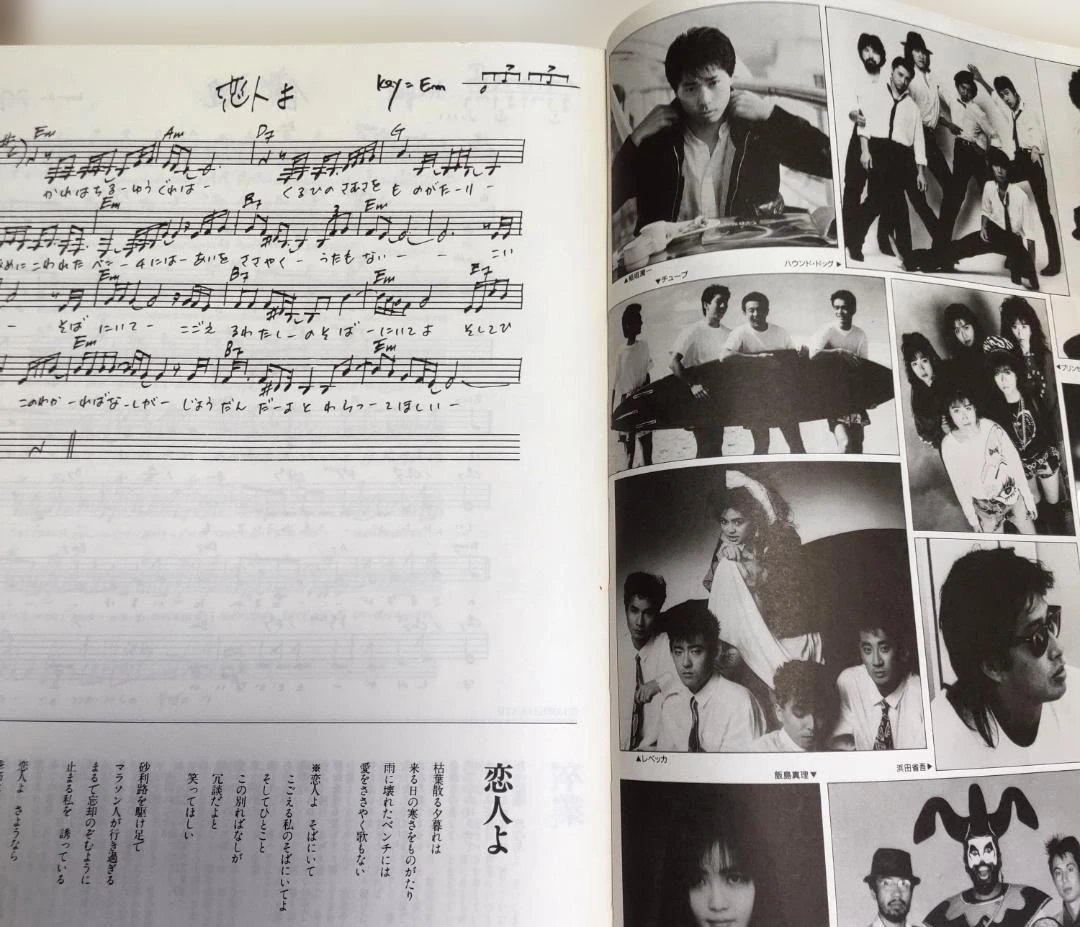 恋人よ key=Em
Em Am D7 G
かれはちる-ゆうぐれは- くるひのさむさをものがたーりー
Em B7 Em
めにこわれたベンーチにはーあいをささやくーうたもないーー こい
Em B7 Em E7
ー そばにいてー こごえるわたしーのそばーにいてよ そしてひ
Em B7 Em
このわかーればなーしがー じょうだんだーよとわらってーほしいー
恋人よ
枯葉散る夕暮れは
来る日の寒さをものがたり
雨に壊れたベンチには
愛をささやく歌もない
※恋人よ そばにいて
こごえる私のそばにいてよ
そしてひとこと
この別ればなしが
冗談だよと
笑ってほしい
砂利路を駆け足で
マラソン人が行き過ぎる
まるで忘却のぞむように
止まる私を 誘っている
恋人よ さようなら
ハウンド・ドッグ▶
▼チューブ
◀プリンセ
▲レベッカ
浜田省吾▶
飯島真理▼